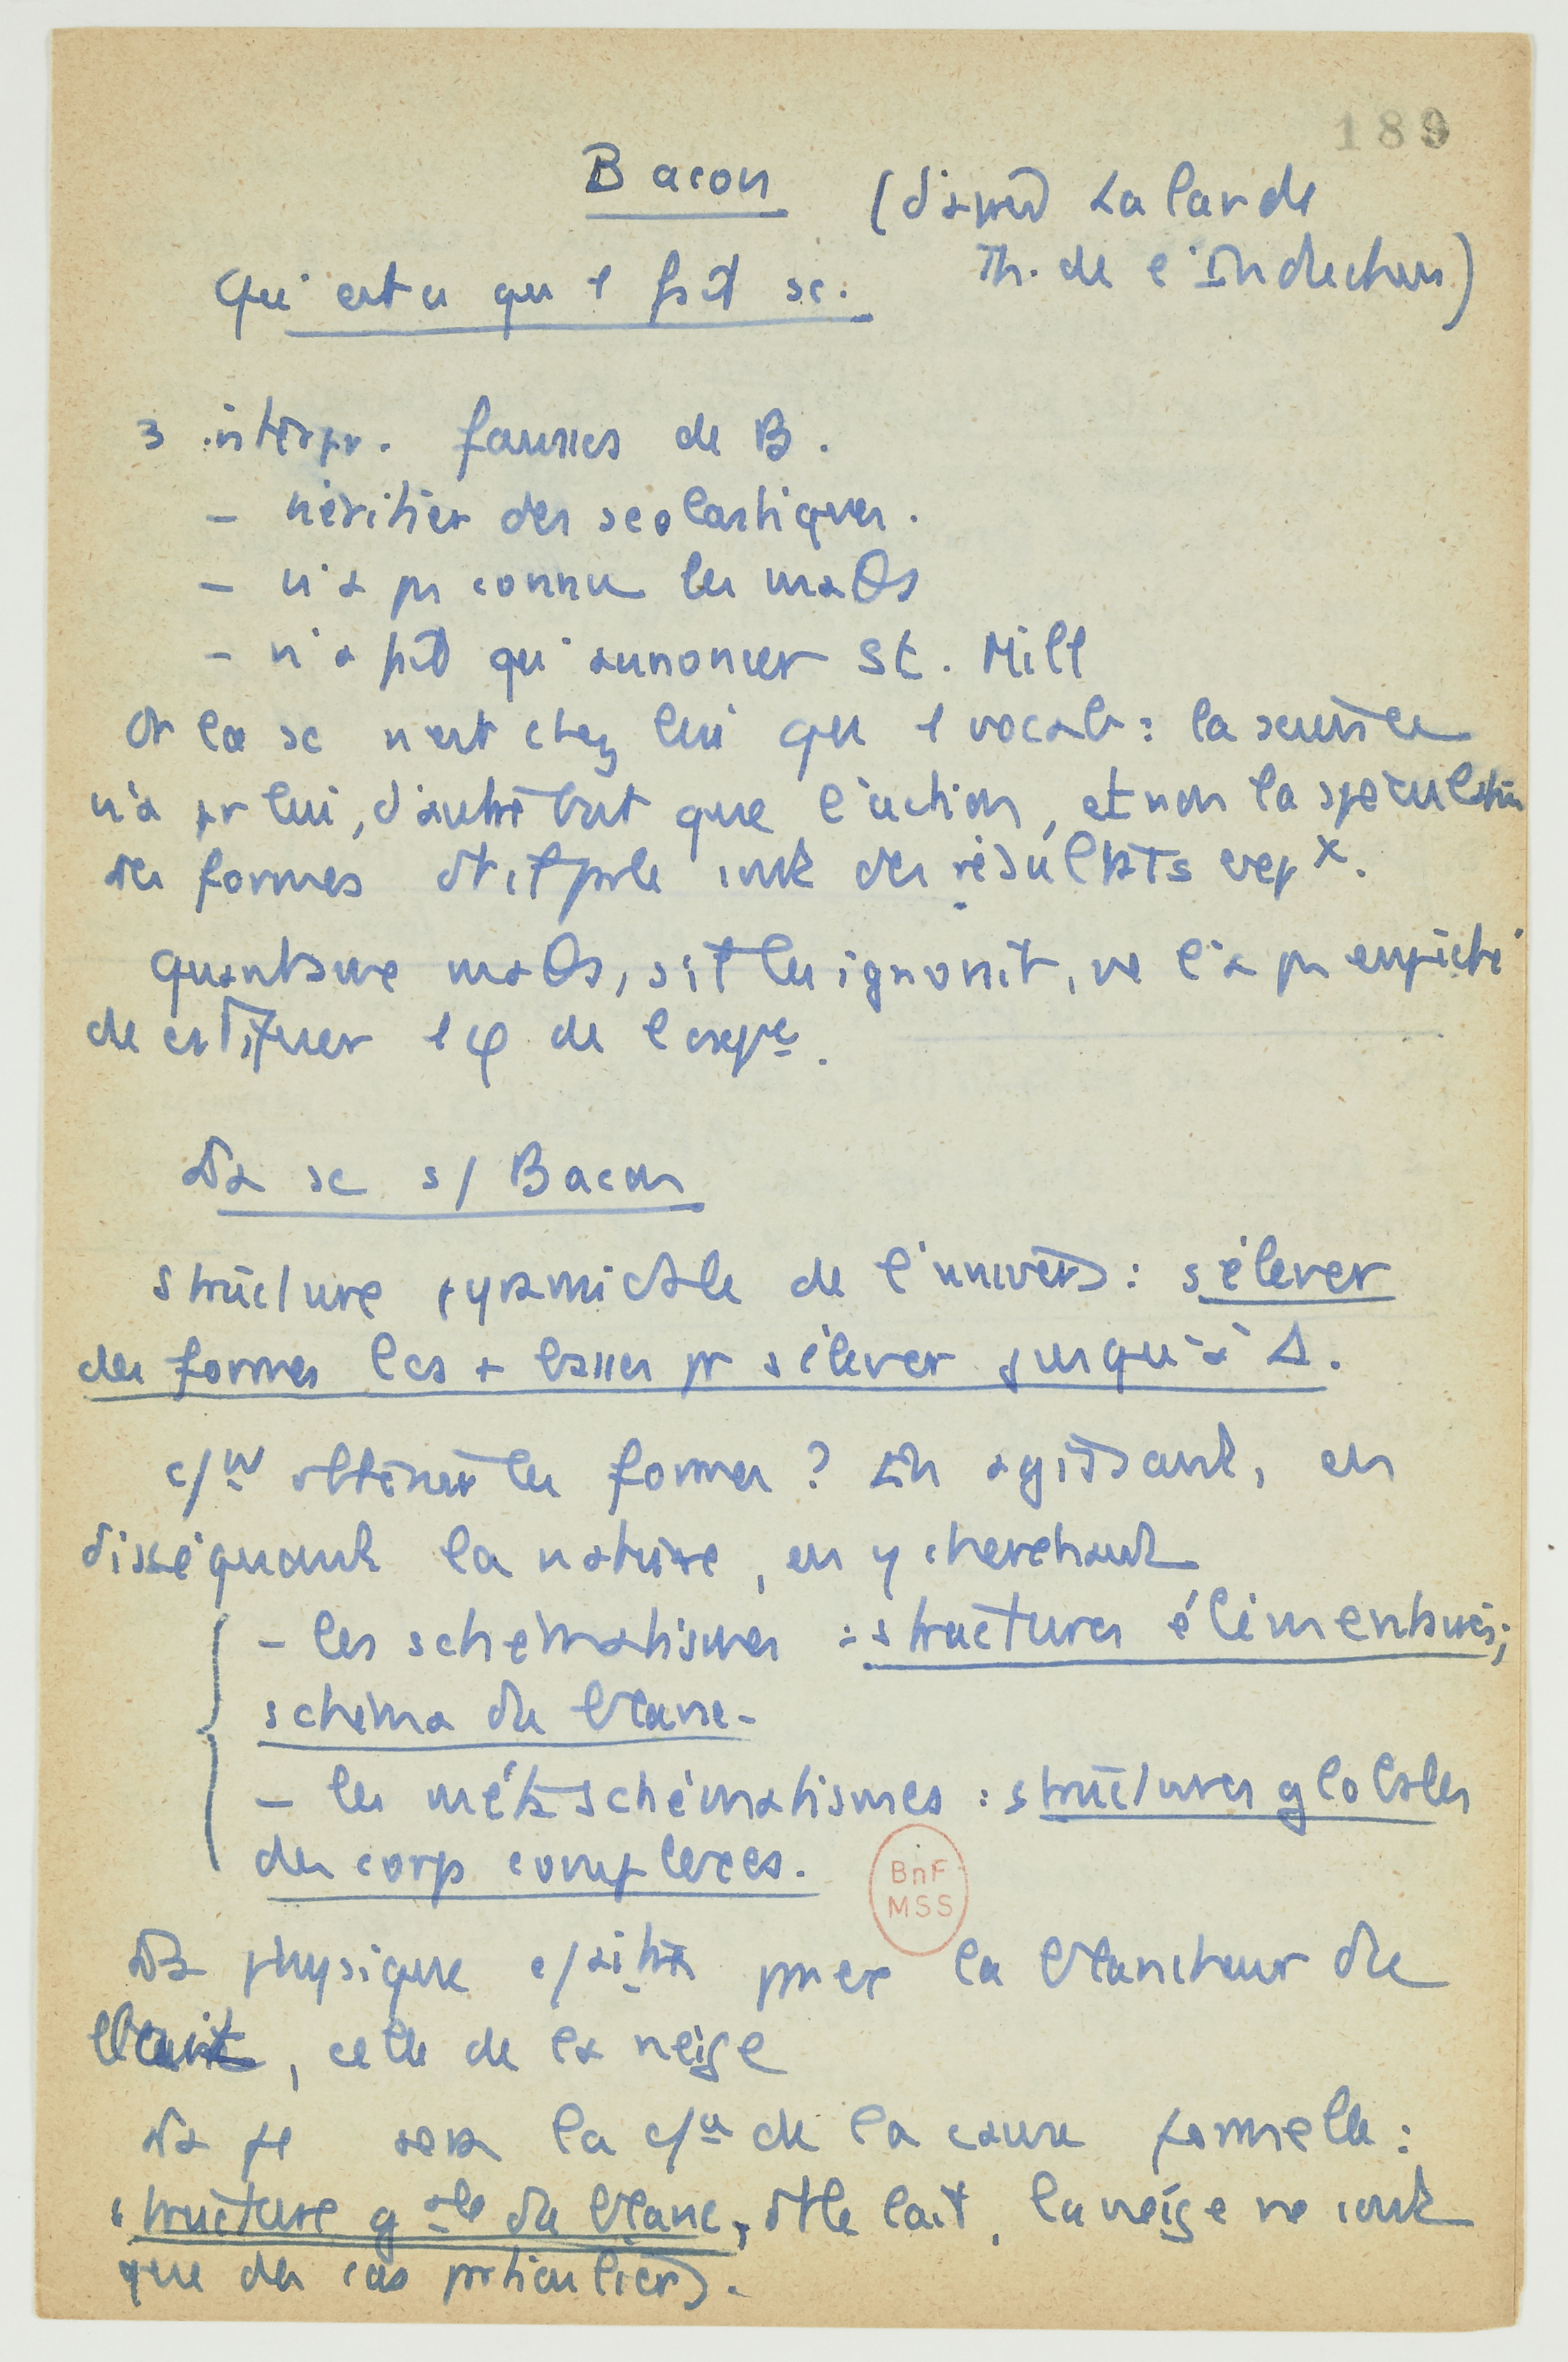 189
Bacon (d'après Lalande
Th. de l'Induction)
Qu'est ce qu'1 fait sc.
3 interpr. fausses de B.
– héritier des scolastiques.
– n'a pas connu les maθs
– n'a fait qu'annoncer St. Mill
Or la sc n'est chez lui qu'1 vocab : la scientia
n'a pr lui, d'autre but que l'action, et non la spéculation
des formes dt il parle sont des résultats exp x.
quant aux maθs, s'il les ignorait, ne l'a pas empêché
de 1 φ de l'expce.
La sc s/ Bacon
Structure pyramidale de l'univers : s'élever
des formes les + basses pr s'élever jusqu'à Δ.
c/nt obtenir les formes ? En agissant, en
disséquant la nature, en y cherchant
– les schématismes : structures élémentaires ;
schéma du blanc.
– les métaschématismes : structures globales
des corps complexes.
La physique par ex la blancheur du
, celle de la neige
La la de la cause formelle :
structure gale du blanc, dt le lait, la neige ne sont
que des cas particuliers.
BnF
MSS